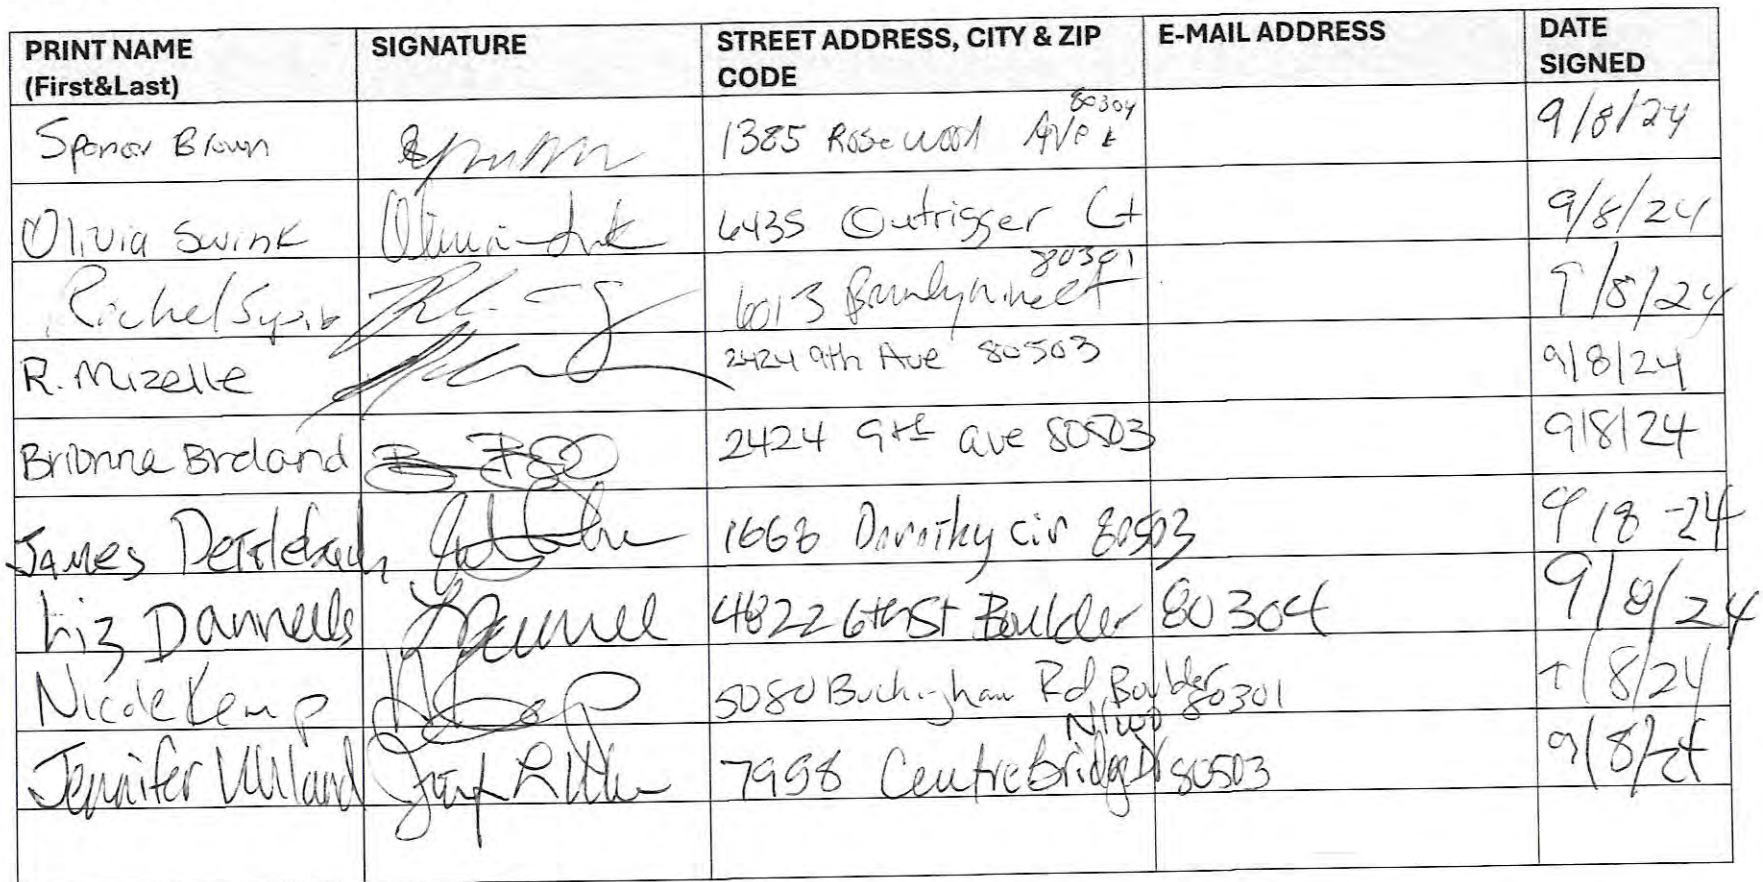 PRINT NAME (First&Last) SIGNATURE STREET ADDRESS, CITY & ZIP CODE E-MAIL ADDRESS DATE SIGNED
80304
Spencer Brown 1385 Rosewood Ave 9/8/24
Olivia Swink 6435 Outrigger Ct 9/8/24
80301
Rachel 6013 9/8/24
R. Mizelle 2424 9th Ave 80503 9/8/24
Brionna Breland 2424 9th ave 80503 9/8/24
James 1668 Dorothy Cir 80503 9/8-24
Liz Dannells 4822 6th St Boulder 80304 9/8/24
Nicole Kemp 5080 Buckingham Rd, Boulder 80301 9/8/24
Niwot
Jennifer 7958 Centrebridge Dr 80503 9/8/24